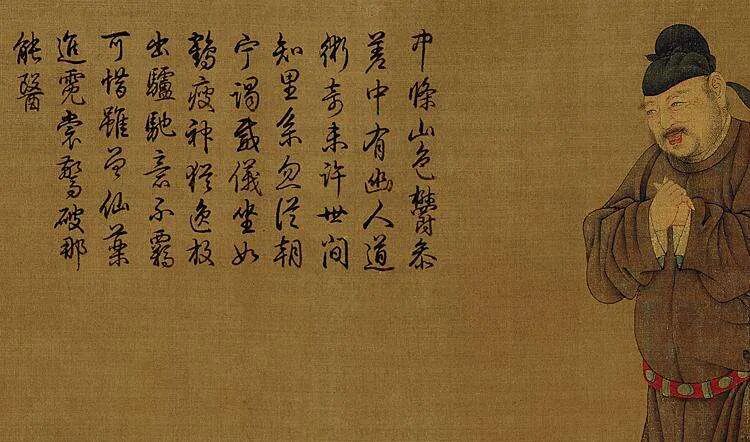 中條山色鬱參
差中有幽人道
術奇未許世間
知里系忽從朝
宁謁威儀坐如
鶴瘦神猶逸放
出驢馳意不羈
可惜雖曾仙藥
進霓裳驚破那
能醫